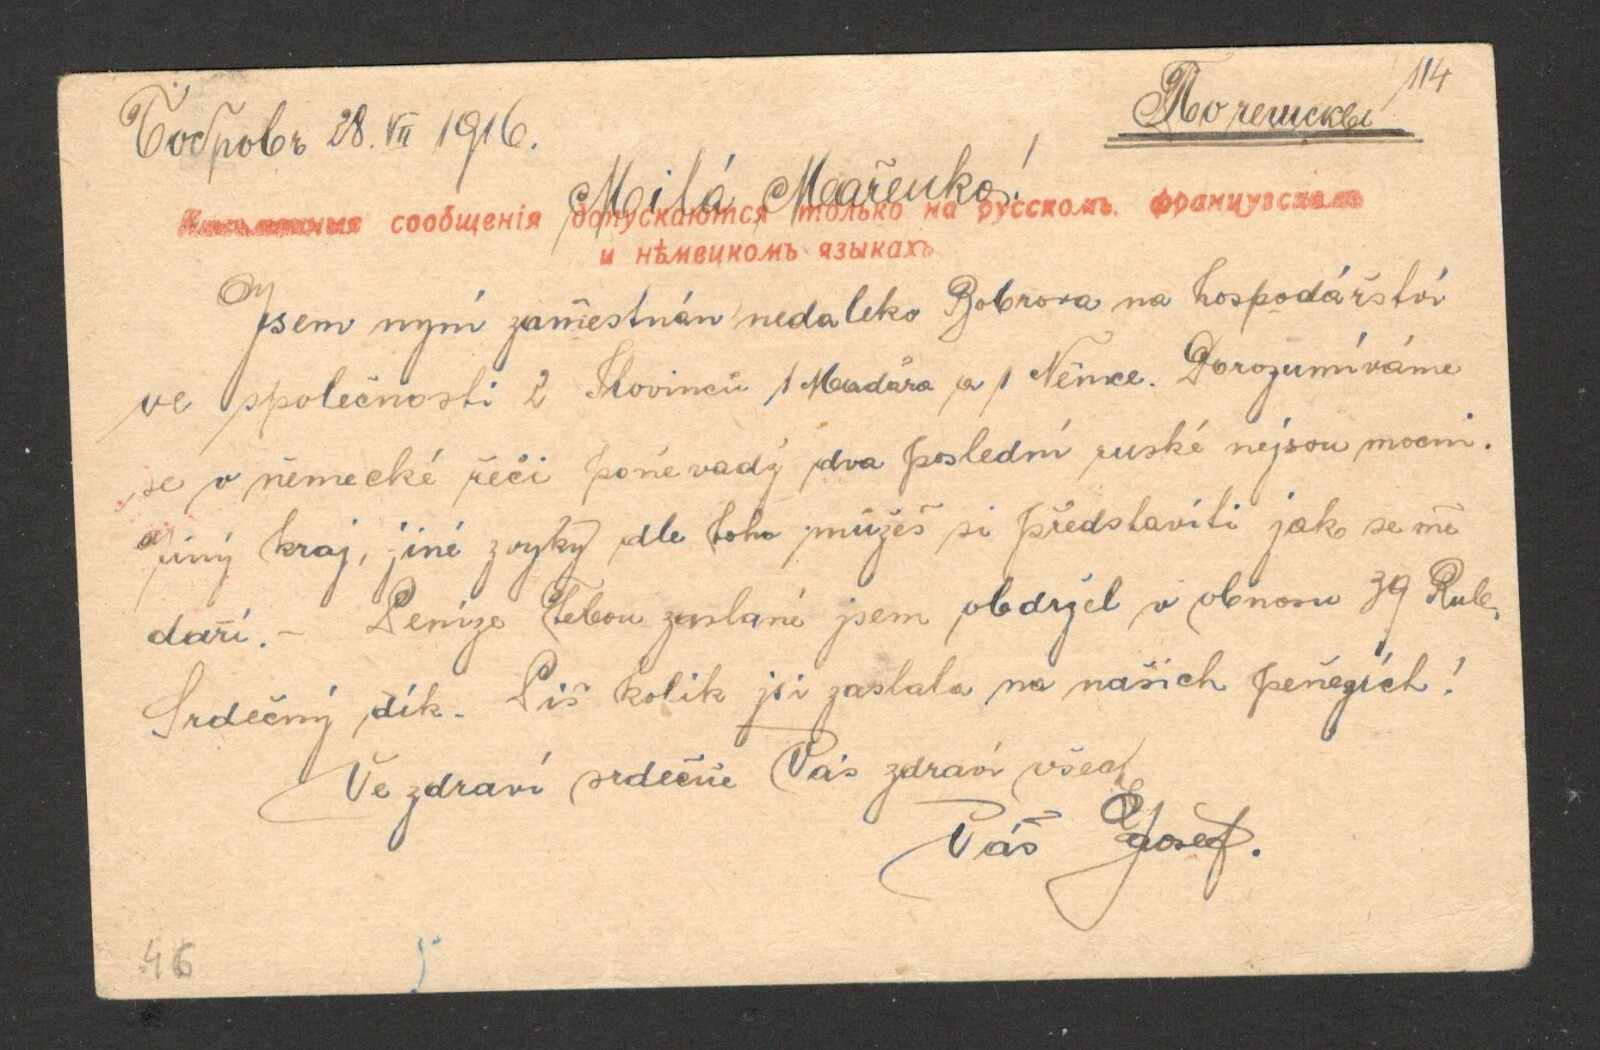 114
Бобровъ 28. VII 1916. По чешскы
Milá Mařenko!
Письменныя сообщенія допускаются только на русскомъ, французскомъ
и нѣмецкомъ языкахъ.
Jsem nyní zaměstnán nedaleko Bobrova na hospodářství
ve společnosti 2 Slovinců 1 Maďara a 1 Němce. Dorozumíváme
se v německé řeči poněvadž dva poslední ruské nejsou mocni.
Jiný kraj, jiné zvyky dle toho můžeš si představiti jak se mě
daří. – Peníze Tebou zaslané jsem obdržel v obnosu 39 Rub.
Srdečný dík. Piš kolik jsi zaslala na našich penězích!
Ve zdraví srdečně Vás zdraví všech
Váš Josef.
46